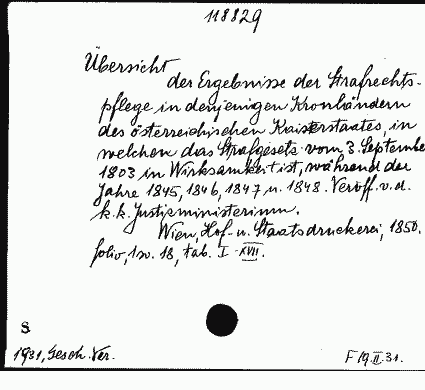 118829
Übersicht
der Ergebnisse der Strafrechts-
pflege in denjenigen Kronländern
des österreichischen Kaiserstaates, in
welchen das Strafgesetz vom 3. September
1803 in Wirksamkeit ist, während der
Jahre 1845, 1846, 1847 u. 1848. Veröff. v. d.
k. k. Justizministerium.
Wien, Hof- u. Staatsdruckerei, 1850.
folio, 18, tab. I-XVII.
S
1931, Gesch. Ver.
F 19.II.31.